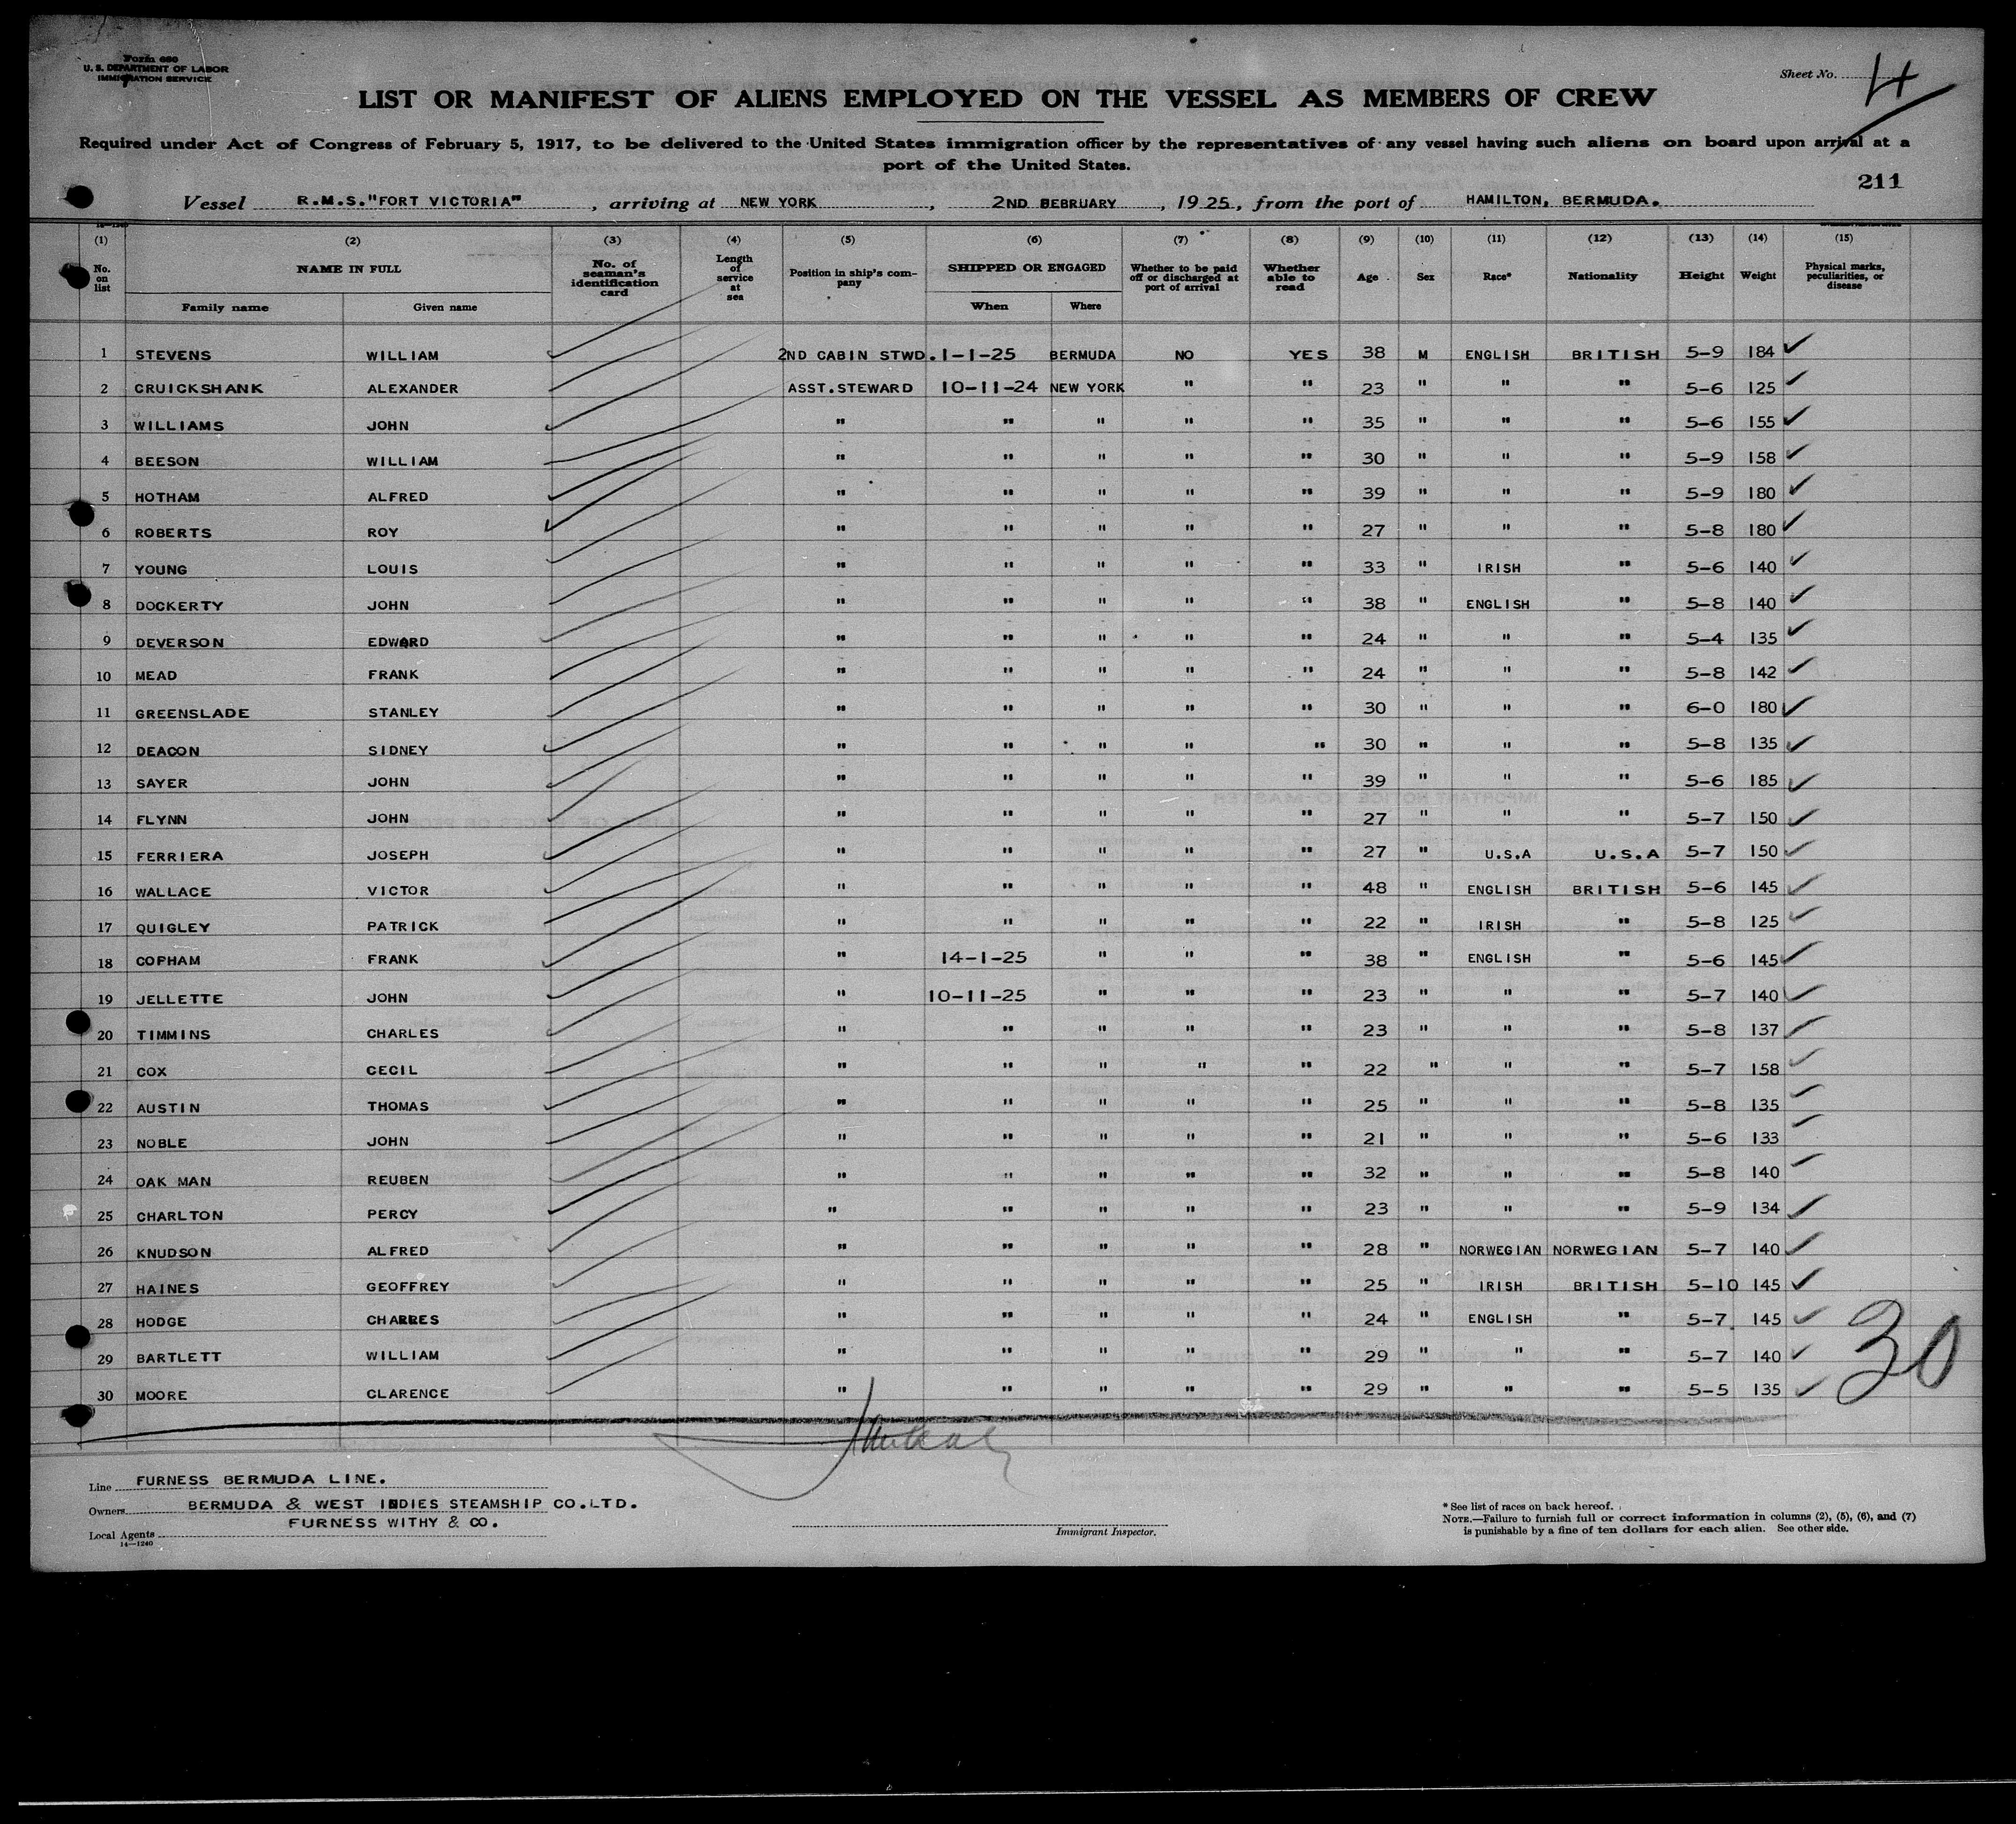 Form 680
U. S. DEPARTMENT OF LABOR
IMMIGRATION SERVICE
Sheet No. 4
LIST OR MANIFEST OF ALIENS EMPLOYED ON THE VESSEL AS MEMBERS OF CREW
Required under Act of Congress of February 5, 1917, to be delivered to the United States immigration officer by the representatives of any vessel having such aliens on board upon arrival at a
port of the United States.
211
Vessel R.M.S."FORT VICTORIA" , arriving at NEW YORK , 2ND BEBRUARY , 1925, from the port of HAMILTON, BERMUDA.
(1) (2) (3) (4) (5) (6) (7) (8) (9) (10) (11) (12) (13) (14) (15)
No. on list NAME IN FULL Family name Given name No. of seaman's identification card Length of service at sea Position in ship's company SHIPPED OR ENGAGED When Where Whether to be paid off or discharged at port of arrival Whether able to read Age Sex Race* Nationality Height Weight Physical marks, peculiarities, or disease
1 STEVENS WILLIAM 2ND CABIN STWD. 1-1-25 BERMUDA NO YES 38 M ENGLISH BRITISH 5-9 184
2 CRUICKSHANK ALEXANDER ASST.STEWARD 10-11-24 NEW YORK " " 23 " " " 5-6 125
3 WILLIAMS JOHN " " " " " 35 " " " 5-6 155
4 BEESON WILLIAM " " " " " 30 " " " 5-9 158
5 HOTHAM ALFRED " " " " " 39 " " " 5-9 180
6 ROBERTS ROY " " " " " 27 " " " 5-8 180
7 YOUNG LOUIS " " " " " 33 " IRISH " 5-6 140
8 DOCKERTY JOHN " " " " " 38 " ENGLISH " 5-8 140
9 DEVERSON EDWARD " " " " " 24 " " " 5-4 135
10 MEAD FRANK " " " " " 24 " " " 5-8 142
11 GREENSLADE STANLEY " " " " " 30 " " " 6-0 180
12 DEACON SIDNEY " " " " " 30 " " " 5-8 135
13 SAYER JOHN " " " " " 39 " " " 5-6 185
14 FLYNN JOHN " " " " " 27 " " " 5-7 150
15 FERRIERA JOSEPH " " " " " 27 " U.S.A U.S.A 5-7 150
16 WALLACE VICTOR " " " " " 48 " ENGLISH BRITISH 5-6 145
17 QUIGLEY PATRICK " " " " " 22 " IRISH " 5-8 125
18 COPHAM FRANK " 14-1-25 " " " 38 " ENGLISH " 5-6 145
19 JELLETTE JOHN " 10-11-25 " " " 23 " " " 5-7 140
20 TIMMINS CHARLES " " " " " 23 " " " 5-8 137
21 COX CECIL " " " " " 22 " " " 5-7 158
22 AUSTIN THOMAS " " " " " 25 " " " 5-8 135
23 NOBLE JOHN " " " " " 21 " " " 5-6 133
24 OAK MAN REUBEN " " " " " 32 " " " 5-8 140
25 CHARLTON PERCY " " " " " 23 " " " 5-9 134
26 KNUDSON ALFRED " " " " " 28 " NORWEGIAN NORWEGIAN 5-7 140
27 HAINES GEOFFREY " " " " " 25 " IRISH BRITISH 5-10 145
28 HODGE CHARRES " " " " " 24 " ENGLISH " 5-7 145
29 BARTLETT WILLIAM " " " " " 29 " " " 5-7 140
30 MOORE CLARENCE " " " " " 29 " " " 5-5 135
30
Line FURNESS BERMUDA LINE.
Owners BERMUDA & WEST INDIES STEAMSHIP CO.LTD.
Local Agents FURNESS WITHY & CO.
14—1240
Immigrant Inspector.
* See list of races on back hereof.
NOTE.—Failure to furnish full or correct information in columns (2), (5), (6), and (7)
is punishable by a fine of ten dollars for each alien. See other side.